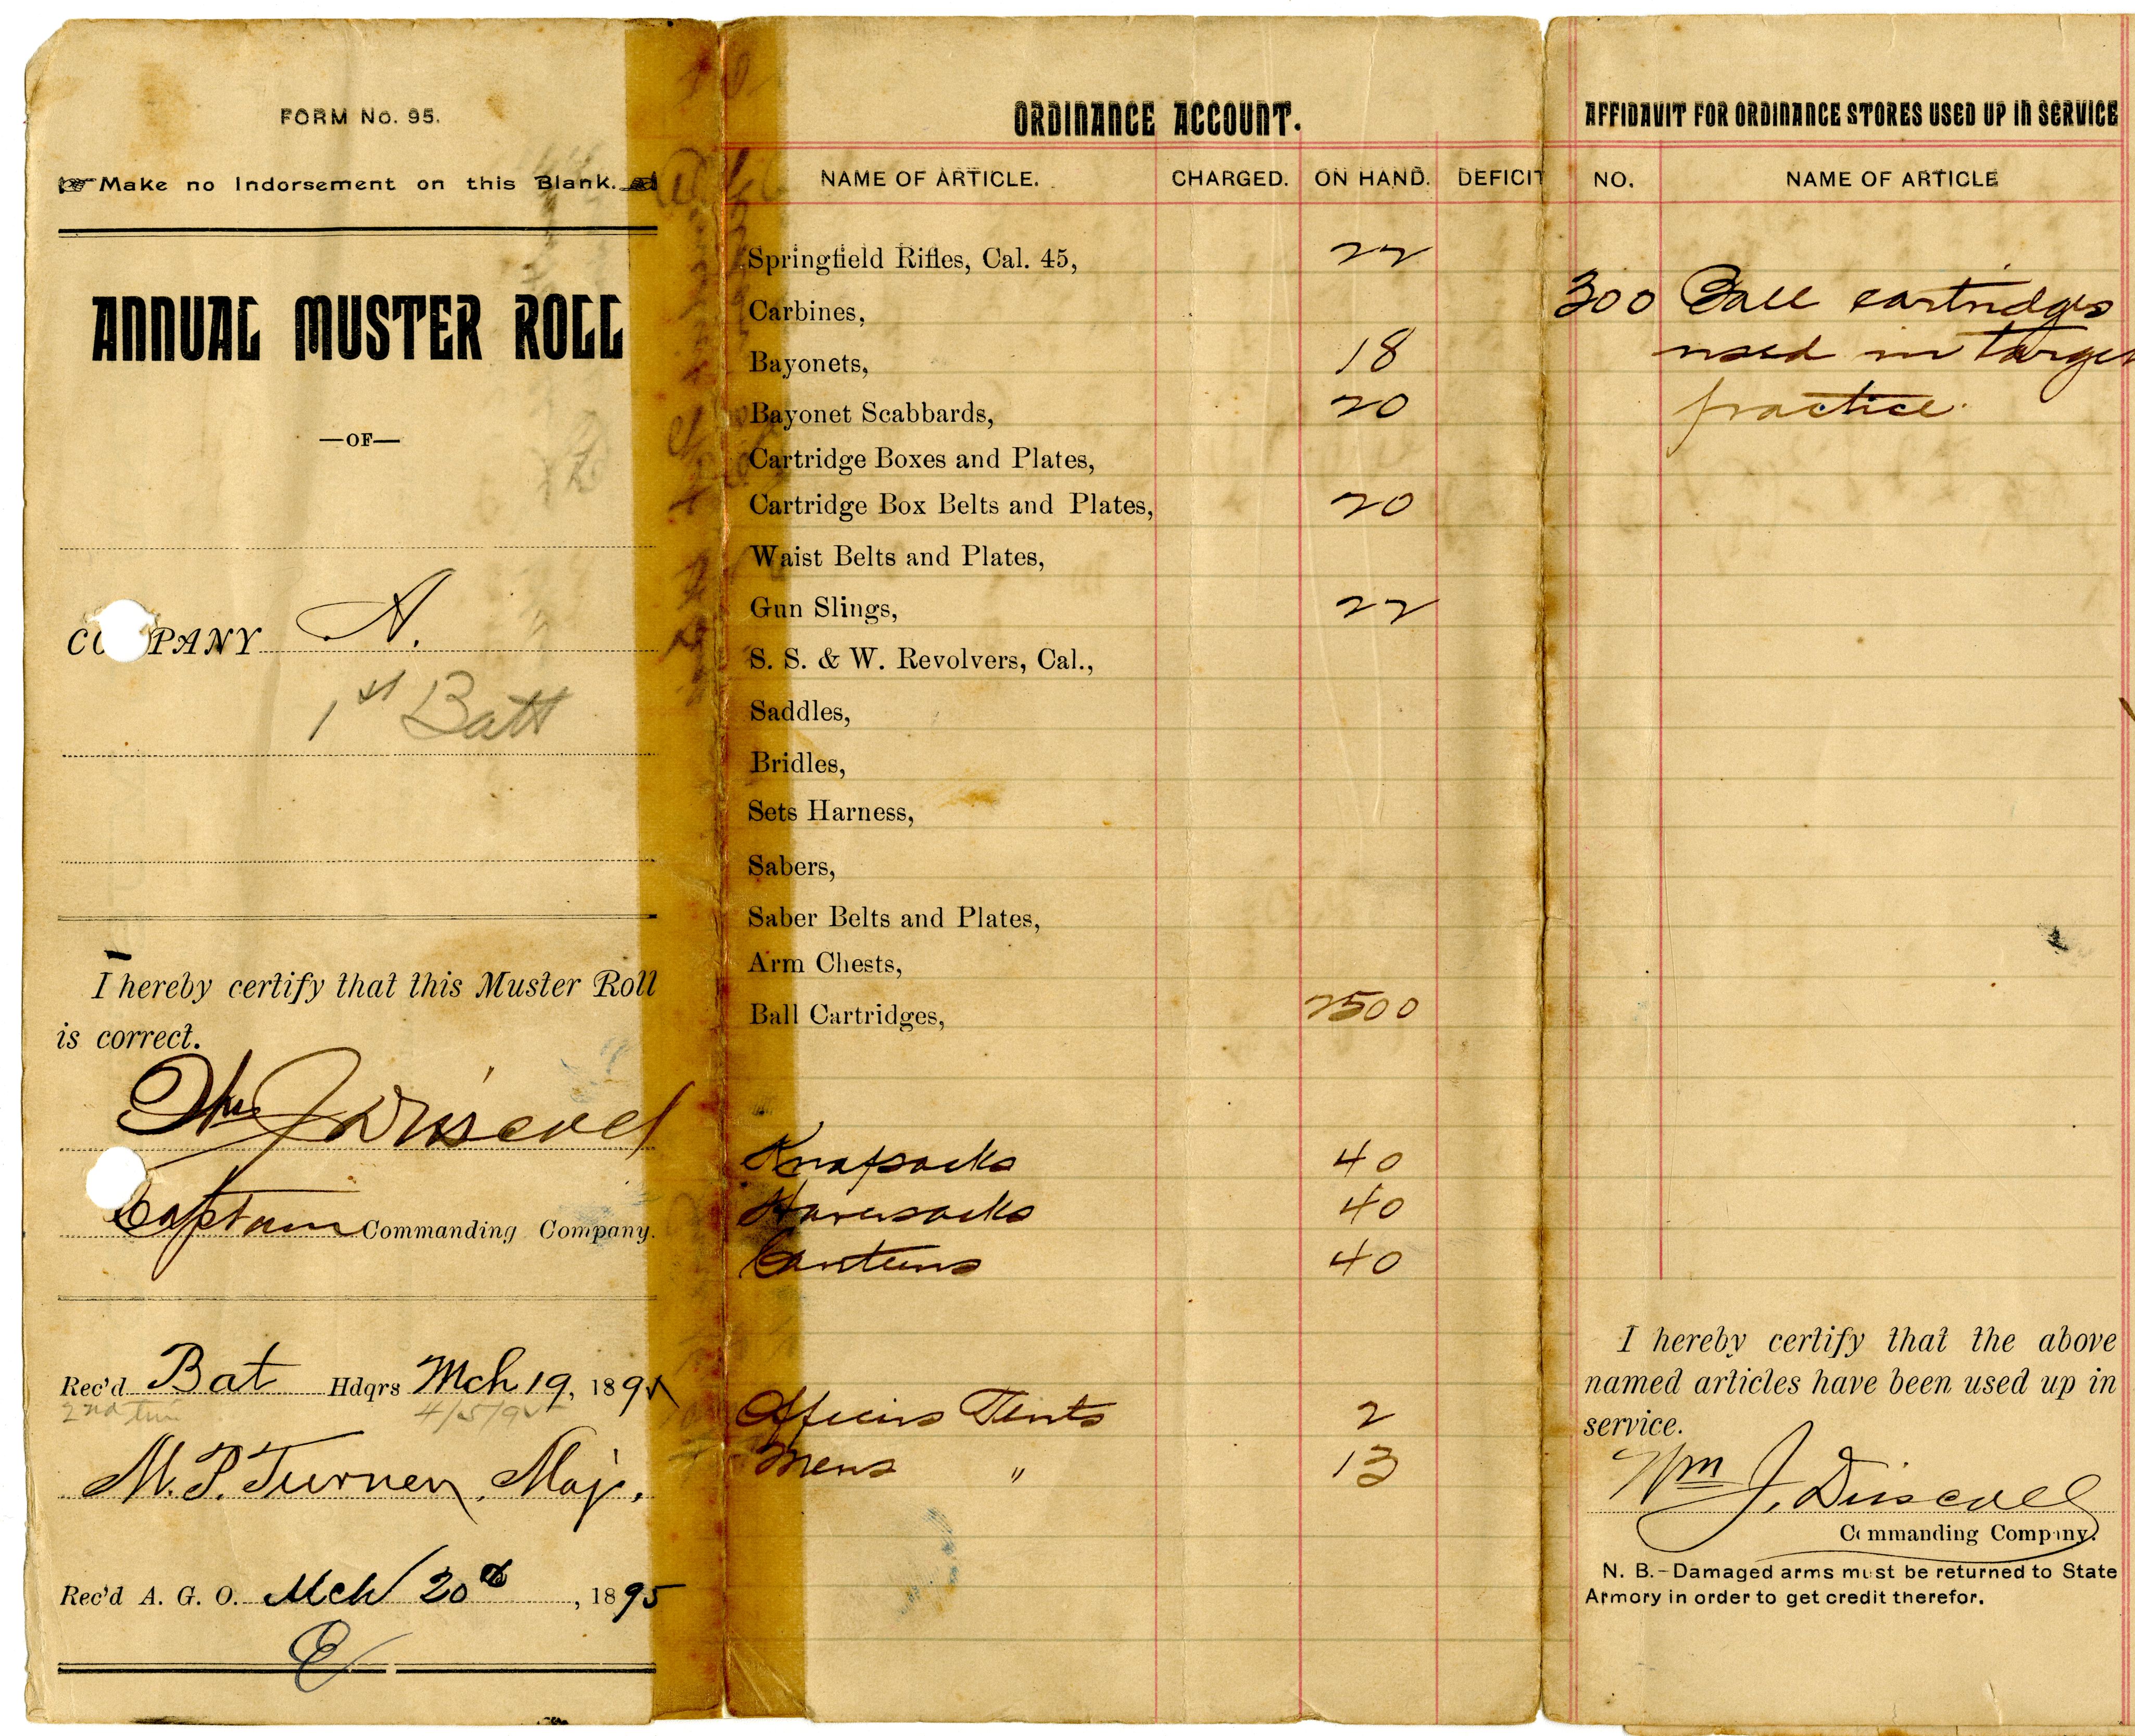 FORM No. 95.
Make no Indorsement on this Blank.
ANNUAL MUSTER ROLL
—OF—
COMPANY A.
1st Batt
I hereby certify that this Muster Roll
is correct.
Wm J Driscoll
Captain Commanding Company.
Rec'd Bat Hdqrs Mch 19, 1895
2nd time 4/5/95
M. P. Turner, Maj.
Rec'd A. G. O. Mch 20th, 1895
ORDINANCE ACCOUNT.
NAME OF ARTICLE. CHARGED. ON HAND. DEFICIT
Springfield Rifles, Cal. 45, 22
Carbines,
Bayonets, 18
Bayonet Scabbards, 20
Cartridge Boxes and Plates,
Cartridge Box Belts and Plates, 20
Waist Belts and Plates,
Gun Slings, 22
S. S. & W. Revolvers, Cal.,
Saddles,
Bridles,
Sets Harness,
Sabers,
Saber Belts and Plates,
Arm Chests,
Ball Cartridges, 2500
Knapsacks 40
Haversacks 40
Canteens 40
Officers Tents 2
Mens " 13
AFFIDAVIT FOR ORDINANCE STORES USED UP IN SERVICE
NO. NAME OF ARTICLE
300 Ball cartridges
used in target
practice.
I hereby certify that the above
named articles have been used up in
service.
Wm J. Driscoll
Commanding Company.
N. B.—Damaged arms must be returned to State
Armory in order to get credit therefor.